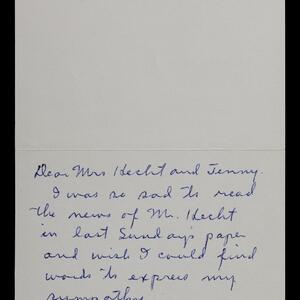 Dear Mrs Hecht and Jenny.
I was so sad to read
the news of Mr. Hecht
in last Sunday's paper
and wish I could find
words to express my
sympathy